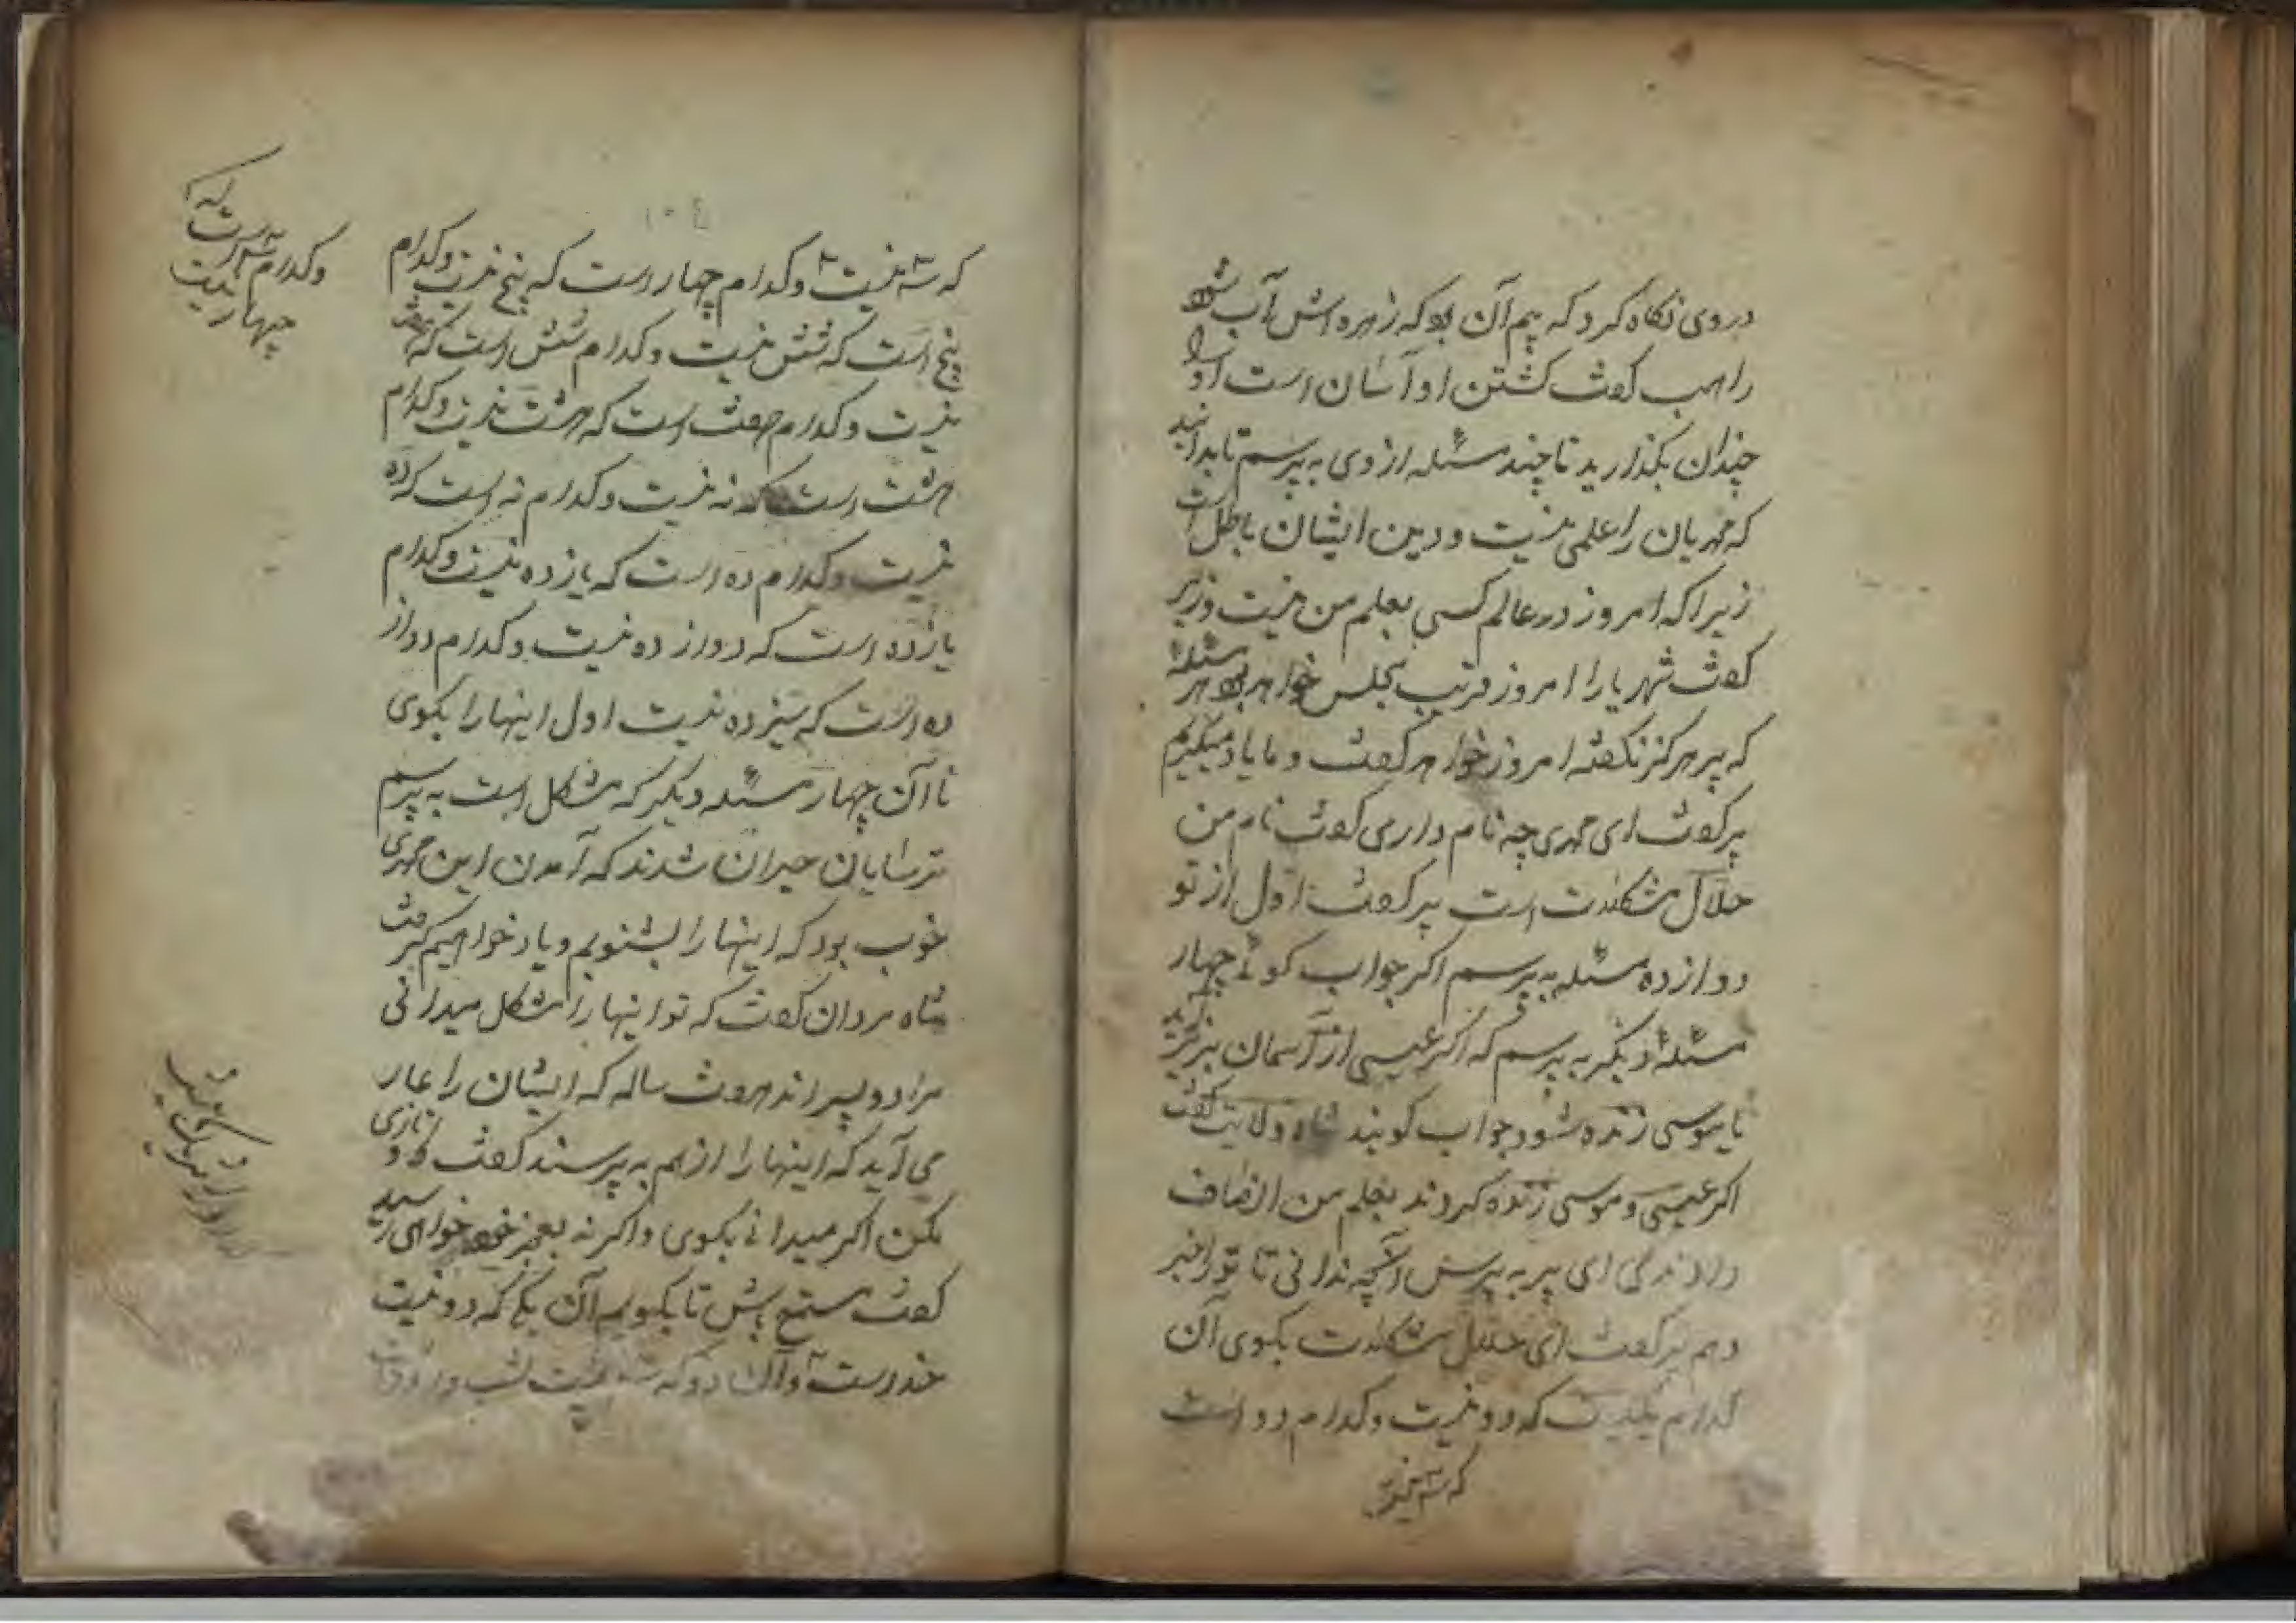 در وی نگاه کرد که بیم آن بود که زهره اش آب شود
راهب کفت کشتن او آسان است او را
چندان بکذارید تا چند مسئله از وی به پرسم تا بدانید
که مهریان را علمی نیست و دین ایشان باطل است
زیرا که امروز در عالم کسی بعلم من نیست وزیر
کفت شهریارا امروز قریب مجلس خواهد بود هر مسئلهٔ
که پیر هرکز نکفته امروز خواهد کفت و ما یاد میکیریم
پیر کفت ای مهری چه نام داری کفت نام من
حلّال مشکلات است پیر کفت اوّل از تو
دوازده مسئله به پرسم اکر جواب کوئی چهار
مسئلهٔ دیکر به پرسم که اکر عیسی از آسمان بزیر آید
تا موسی زنده شود جواب کویند شاه ولایت کفت
اکر عیسی و موسی زنده کردند بعلم من انصاف
دادند کی ای پیر به پرس آنچه ندانی تا تو را خبر
دهم پیر کفت ای حلال مشکلات بکوی آن
کدام یکیست که دو نیست و کدام دو است
که سه نیست
که سه نیست و کدام چهار است که پنج نیست و کدام
پنج است که شش نیست و کدام شش است که هفت
نیست و کدام هفت است که هشت نیست و کدام
هشت است که نه نیست و کدام نه است که ده
نیست و کدام ده است که یازده نیست و کدام
یازده است که دوازده نیست و کدام دواز
ده است که سیزده نیست اول اینها را بکوی
تا آن چهار مسئله دیکر که مشکل است به پرسم
ترسایان حیران شدند که آمدن این مهری
خوب بود که اینها را بشنویم و یاد خواهیم کرفت
شاه مردان کفت که تو اینها را مشکل میدانی
مرا دو پسر اند هفت ساله که ایشان را عار
می آید که اینها را از هم به پرسند کفت
مکن اکر میدانی بکوی و اکر نه بعجز خود خواهی رسید
کفت مستمع باش تا بکویم آن یکی که دو نیست
خداست و آن دو که سه نیست شب و روز
و کدام سه است که
چهار نیست